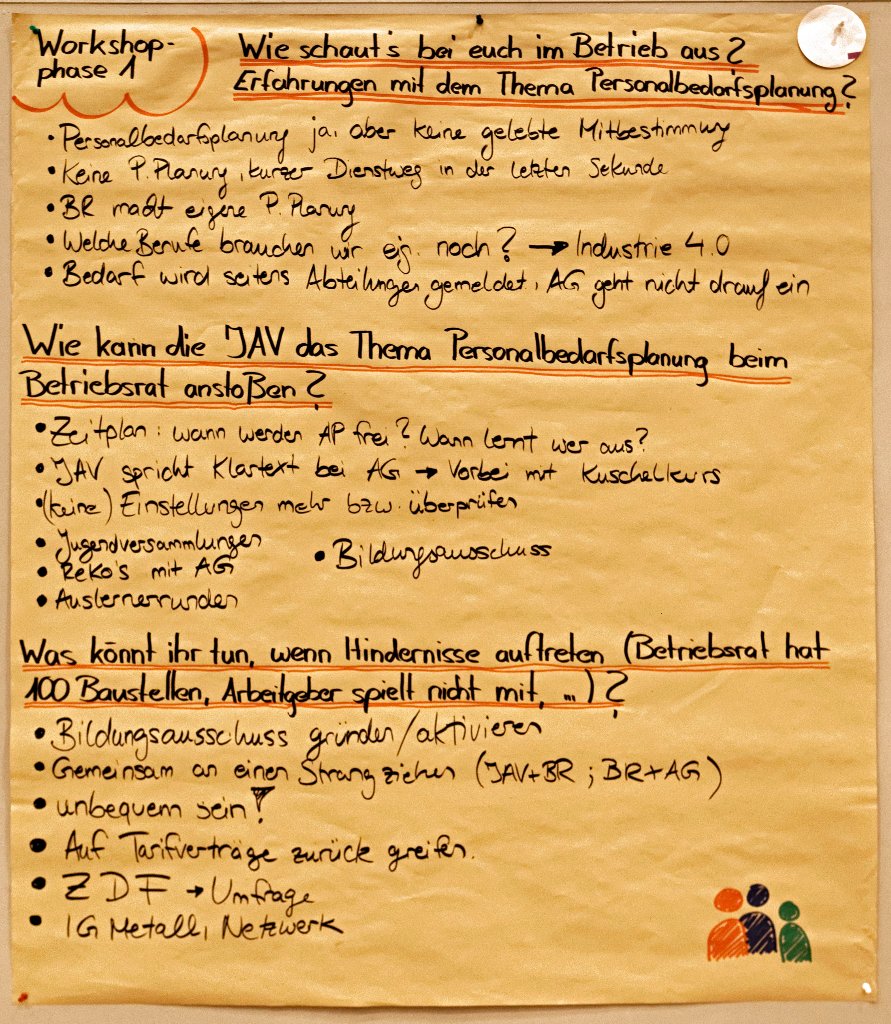 Workshop-
phase 1
Wie schaut's bei euch im Betrieb aus?
Erfahrungen mit dem Thema Personalbedarfsplanung?
• Personalbedarfsplanung ja, aber keine gelebte Mitbestimmung
• Keine P. Planung, kurzer Dienstweg in der letzten Sekunde
• BR macht eigene P. Planung
• Welche Berufe brauchen wir eig. noch? → Industrie 4.0
• Bedarf wird seitens Abteilungen gemeldet, AG geht nicht drauf ein
Wie kann die JAV das Thema Personalbedarfsplanung beim
Betriebsrat anstoßen?
• Zeitplan: wann werden AP frei? Wann lernt wer aus?
• JAV spricht Klartext bei AG → Vorbei mit Kuschelkurs
• (keine) Einstellungen mehr bzw. überprüfen
• Jugendversammlungen
• ReKo's mit AG
• Auslernerrunden
• Bildungsausschuss
Was könnt ihr tun, wenn Hindernisse auftreten (Betriebsrat hat
100 Baustellen, Arbeitgeber spielt nicht mit, ...)?
• Bildungsausschuss gründen/aktivieren
• Gemeinsam an einen Strang ziehen (JAV+BR; BR+AG)
• unbequem sein!
• Auf Tarifverträge zurück greifen.
• ZDF → Umfrage
• IG Metall, Netzwerk